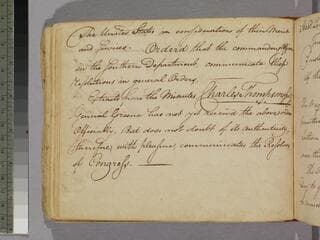 The United States in consideration of their Merit
and Services. Orderd that the commanding
in the Southern Department communicate these
Resolutions in general Orders.
Extract from the Minutes Charles Thompson
General Greene has not yet received the above
Officially. But does not doubt of its Authenticity,
therefore, with pleasure, communicates the Resolves
of Congress.